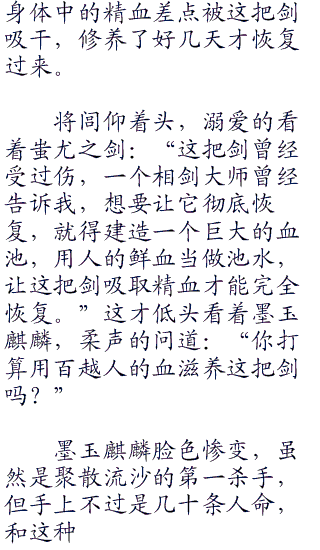 身体中的精血差点被这把剑
吸干，修养了好几天才恢复
过来。
将闾仰着头，溺爱的看
着蚩尤之剑：“这把剑曾经
受过伤，一个相剑大师曾经
告诉我，想要让它彻底恢
复，就得建造一个巨大的血
池，用人的鲜血当做池水，
让这把剑吸取精血才能完全
恢复。”这才低头看着墨玉
麒麟，柔声的问道：“你打
算用百越人的血滋养这把剑
吗？”
墨玉麒麟脸色惨变，虽
然是聚散流沙的第一杀手，
但手上不过是几十条人命，
和这种